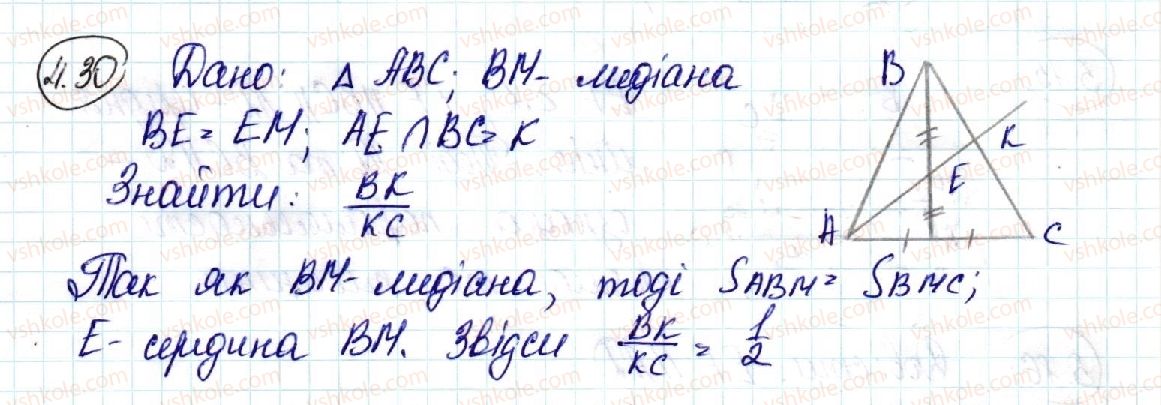 4.30 Дано: △ ABC; BM- медіана
BE = EM; AE ∩ BC = K
Знайти: BK/KC
B
K
E
A
C
Так як BM- медіана, тоді S ABM = S BMC;
E- середина BM. Звідси BK/KC = 1/2